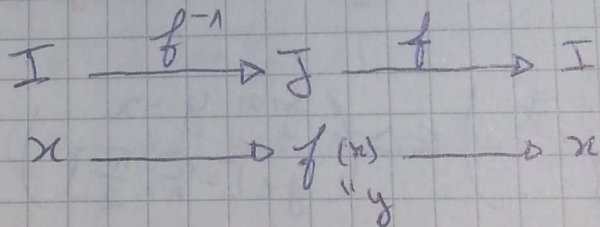 I f⁻¹ J f I
x f(x) x
"y